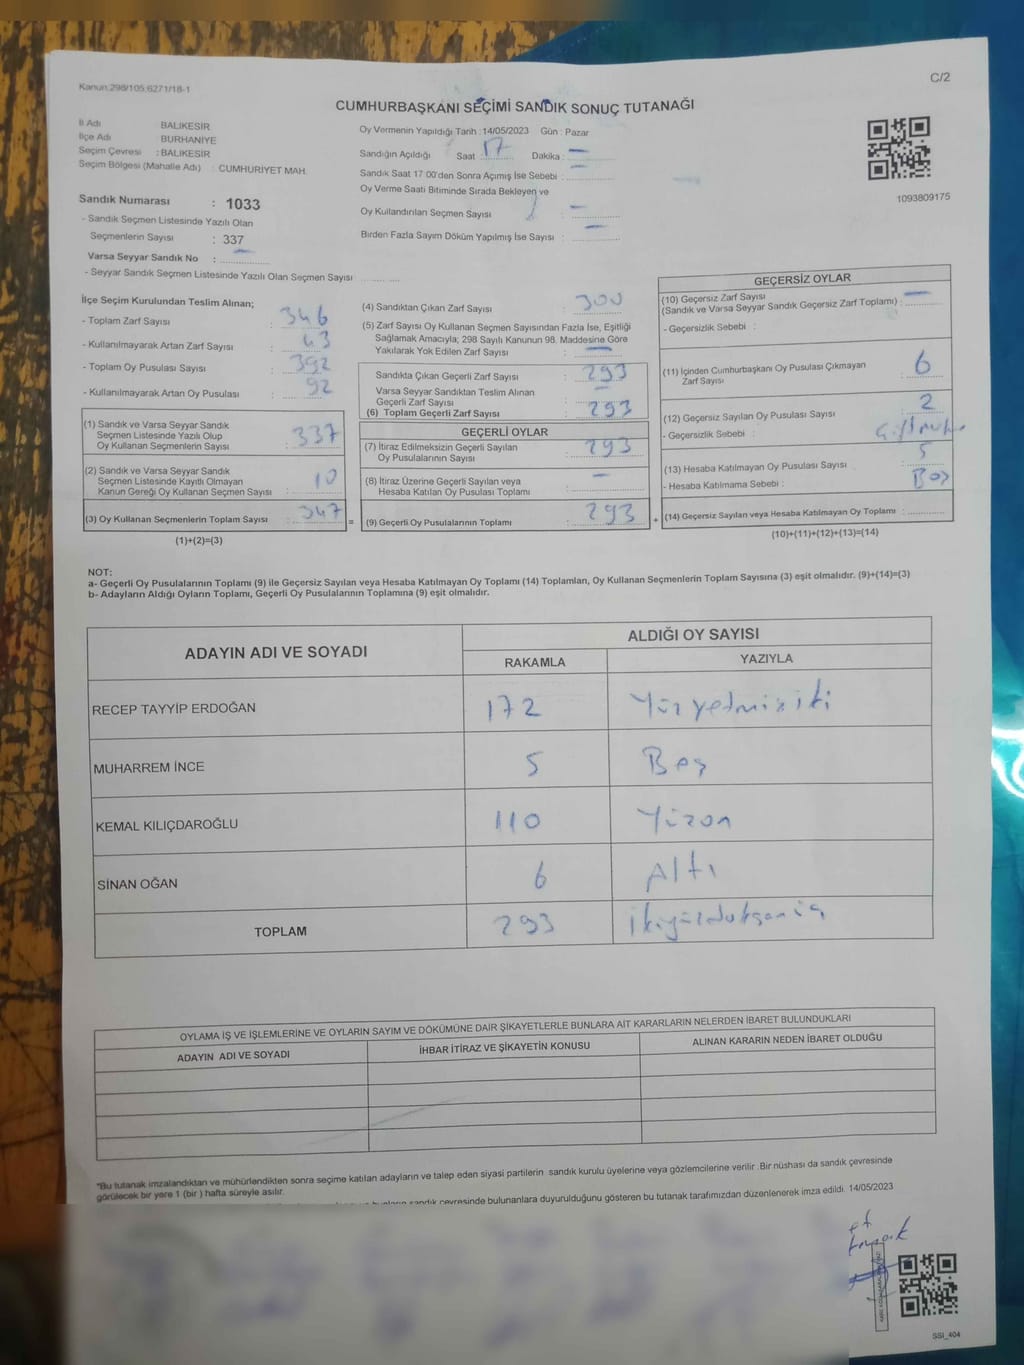 Kanun.298/105,6271/18-1
C/2
CUMHURBAŞKANI SEÇİMİ SANDIK SONUÇ TUTANAĞI
İl Adı BALIKESİR
İlçe Adı BURHANİYE
Seçim Çevresi : BALIKESİR
Seçim Bölgesi (Mahalle Adı) : CUMHURİYET MAH.
Sandık Numarası : 1033
- Sandık Seçmen Listesinde Yazılı Olan
Seçmenlerin Sayısı : 337
Varsa Seyyar Sandık No :
- Seyyar Sandık Seçmen Listesinde Yazılı Olan Seçmen Sayısı
Oy Vermenin Yapıldığı Tarih : 14/05/2023 Gün : Pazar
Sandığın Açıldığı Saat : 17 Dakika : —
Sandık Saat 17 00'den Sonra Açımış İse Sebebi : —
Oy Verme Saati Bitiminde Sırada Bekleyen ve
Oy Kullandırılan Seçmen Sayısı : —
Birden Fazla Sayım Döküm Yapılmış İse Sayısı : —
1093809175
İlçe Seçim Kurulundan Teslim Alınan;
- Toplam Zarf Sayısı : 346
- Kullanılmayarak Artan Zarf Sayısı : 43
- Toplam Oy Pusulası Sayısı : 392
- Kullanılmayarak Artan Oy Pusulası : 92
(1) Sandık ve Varsa Seyyar Sandık
Seçmen Listesinde Yazılı Olup
Oy Kullanan Seçmenlerin Sayısı : 337
(2) Sandık ve Varsa Seyyar Sandık
Seçmen Listesinde Kayıtlı Olmayan
Kanun Gereği Oy Kullanan Seçmen Sayısı : 10
(3) Oy Kullanan Seçmenlerin Toplam Sayısı : 347 =
(1)+(2)=(3)
(4) Sandıktan Çıkan Zarf Sayısı : 300
(5) Zarf Sayısı Oy Kullanan Seçmen Sayısından Fazla İse, Eşitliği
Sağlamak Amacıyla; 298 Sayılı Kanunun 98. Maddesine Göre
Yakılarak Yok Edilen Zarf Sayısı : —
Sandıkta Çıkan Geçerli Zarf Sayısı : 293
Varsa Seyyar Sandıktan Teslim Alınan
Geçerli Zarf Sayısı : —
(6) Toplam Geçerli Zarf Sayısı : 293
GEÇERLİ OYLAR
(7) İtiraz Edilmeksizin Geçerli Sayılan
Oy Pusulalarının Sayısı : 293
(8) İtiraz Üzerine Geçerli Sayılan veya
Hesaba Katılan Oy Pusulası Toplamı : —
(9) Geçerli Oy Pusulalarının Toplamı : 293 +
GEÇERSİZ OYLAR
(10) Geçersiz Zarf Sayısı
(Sandık ve Varsa Seyyar Sandık Geçersiz Zarf Toplamı) : —
- Geçersizlik Sebebi :
(11) İçinden Cumhurbaşkanı Oy Pusulası Çıkmayan
Zarf Sayısı : 6
(12) Geçersiz Sayılan Oy Pusulası Sayısı : 2
- Geçersizlik Sebebi :
(13) Hesaba Katılmayan Oy Pusulası Sayısı : 5
- Hesaba Katılmama Sebebi : Boş
(14) Geçersiz Sayılan veya Hesaba Katılmayan Oy Toplamı :
(10)+(11)+(12)+(13)=(14)
NOT:
a- Geçerli Oy Pusulalarının Toplamı (9) ile Geçersiz Sayılan veya Hesaba Katılmayan Oy Toplamı (14) Toplamları, Oy Kullanan Seçmenlerin Toplam Sayısına (3) eşit olmalıdır. (9)+(14)=(3)
b- Adayların Aldığı Oyların Toplamı, Geçerli Oy Pusulalarının Toplamına (9) eşit olmalıdır.
ADAYIN ADI VE SOYADI
ALDIĞI OY SAYISI
RAKAMLA YAZIYLA
RECEP TAYYİP ERDOĞAN 172 Yüz yetmiş iki
MUHARREM İNCE 5 Beş
KEMAL KILIÇDAROĞLU 110 Yüzon
SİNAN OĞAN 6 Altı
TOPLAM 293
OYLAMA İŞ VE İŞLEMLERİNE VE OYLARIN SAYIM VE DÖKÜMÜNE DAİR ŞİKAYETLERLE BUNLARA AİT KARARLARIN NELERDEN İBARET BULUNDUKLARI
ADAYIN ADI VE SOYADI İHBAR İTİRAZ VE ŞİKAYETİN KONUSU ALINAN KARARIN NEDEN İBARET OLDUĞU
"Bu tutanak imzalandıktan ve mühürlendikten sonra seçime katılan adayların ve talep eden siyasi partilerin sandık kurulu üyelerine veya gözlemcilerine verilir .Bir nüshası da sandık çevresinde
görülecek bir yere 1 (bir ) hafta süreyle asılır.
sandık çevresinde bulunanlara duyurulduğunu gösteren bu tutanak tarafımızdan düzenlenerek imza edildi. 14/05/2023
SSI_404